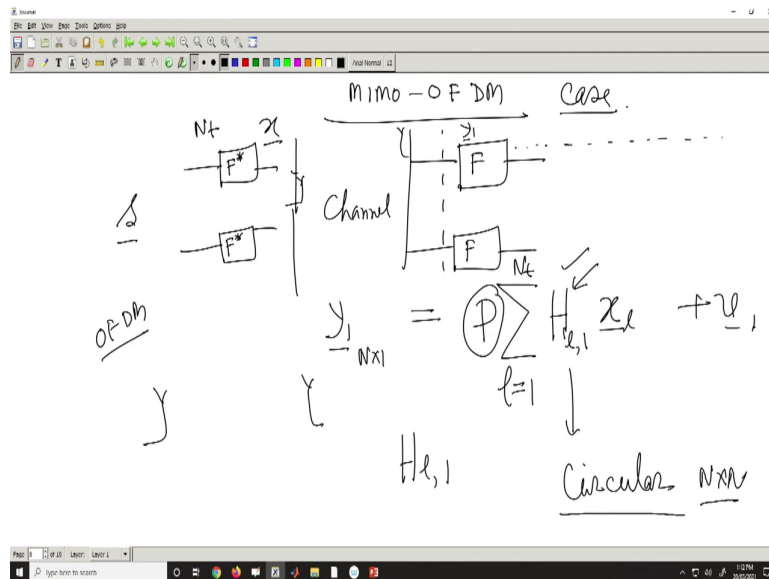 Xournal
File Edit View Page Tools Options Help
Anal Normal 12
MIMO-OFDM Case.
Nt x
y1
F*
F
S
Channel
F*
F
OFDM
Nt
y1 = P ∑ Hl,1 xl + v1
N×1
l=1
Hl,1
Circular N×N
Page 8 of 10 Layer: Layer 1
Type here to search
1:12 PM